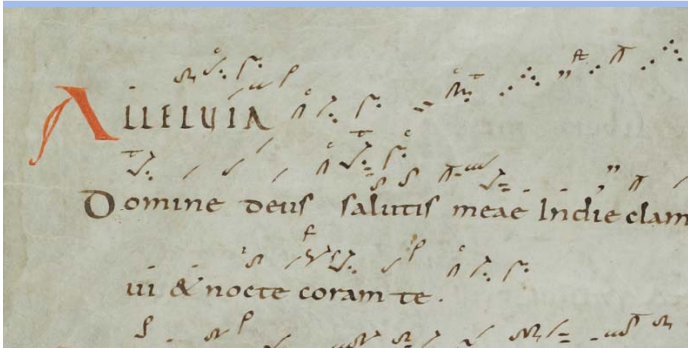 ALLELUIA
Domine deus salutis meae Indie clam
ui & nocte coram te.